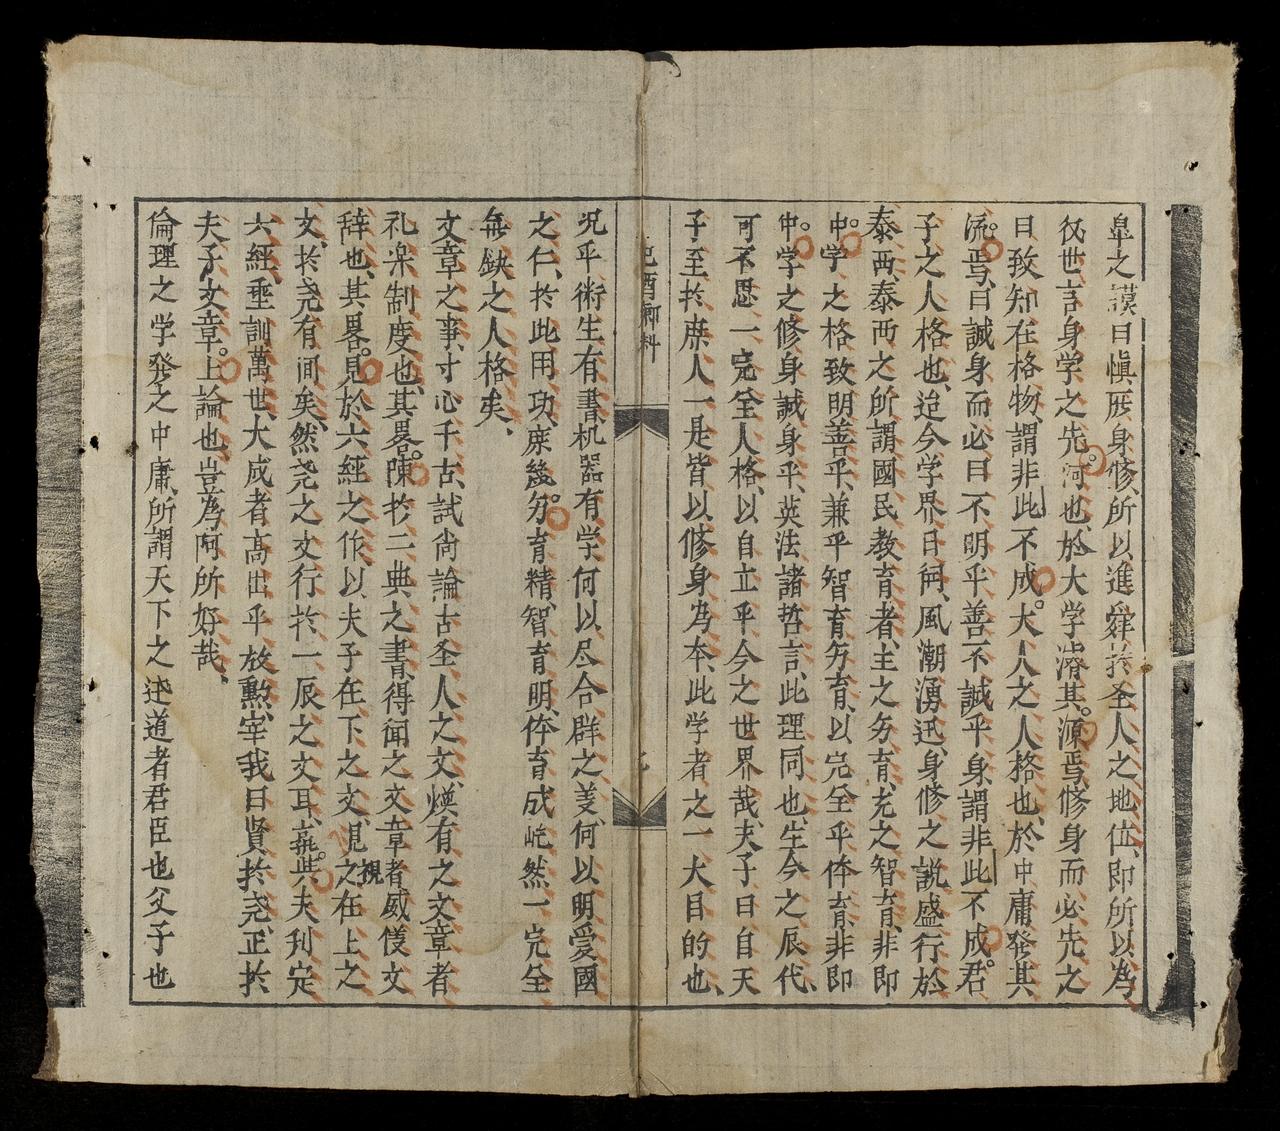 皐之謨曰慎厥身修、所以進舜於圣人之地位、即所以為
後世言身学之先河也、於大学濬其源焉、修身而必先之
曰致知在格物、謂非此不成大人之人格也、於中庸発其
流焉、曰誠身而必曰不明乎善不誠乎身、謂非此不成君
子之人格也、迨今学界日闢、風潮湧迅、身修之説盛行於
泰西、泰西之所謂國民教育者、主之务育、充之智育、非即
中学之格致明善乎、兼乎智育务育、以完全乎体育、非即
中学之修身誠身乎、英法諸哲言、此理同也、生今之辰代、
可不思一完全人格、以自立乎今之世界哉、夫子曰自天
子至於庶人一是皆以修身為本、此学者之一大目的也、
己酉鄉科
況乎術生有書、机器有学、何以尽合群之義、何以明愛國
之仁、於此用功、庶幾务育精、智育明、体育成、屹然一完全
無缺之人格矣、
文章之事、寸心千古、試尚論古圣人之文、煥有之文章者
礼楽制度也、其畧陳於二典之書、得聞之文章者威儀文
辞也、其畧見於六經之作、以夫子在下之文、見之在上之
視
文、於尧有间矣、然尧之文行於一辰之文耳、孰與夫刋定
六經、垂訓萬世、大成者高出乎放勲、宰我曰賢於尧、正於
夫子文章上論也、豈為阿所好哉、
倫理之学発之中庸、所謂天下之达道者君臣也父子也